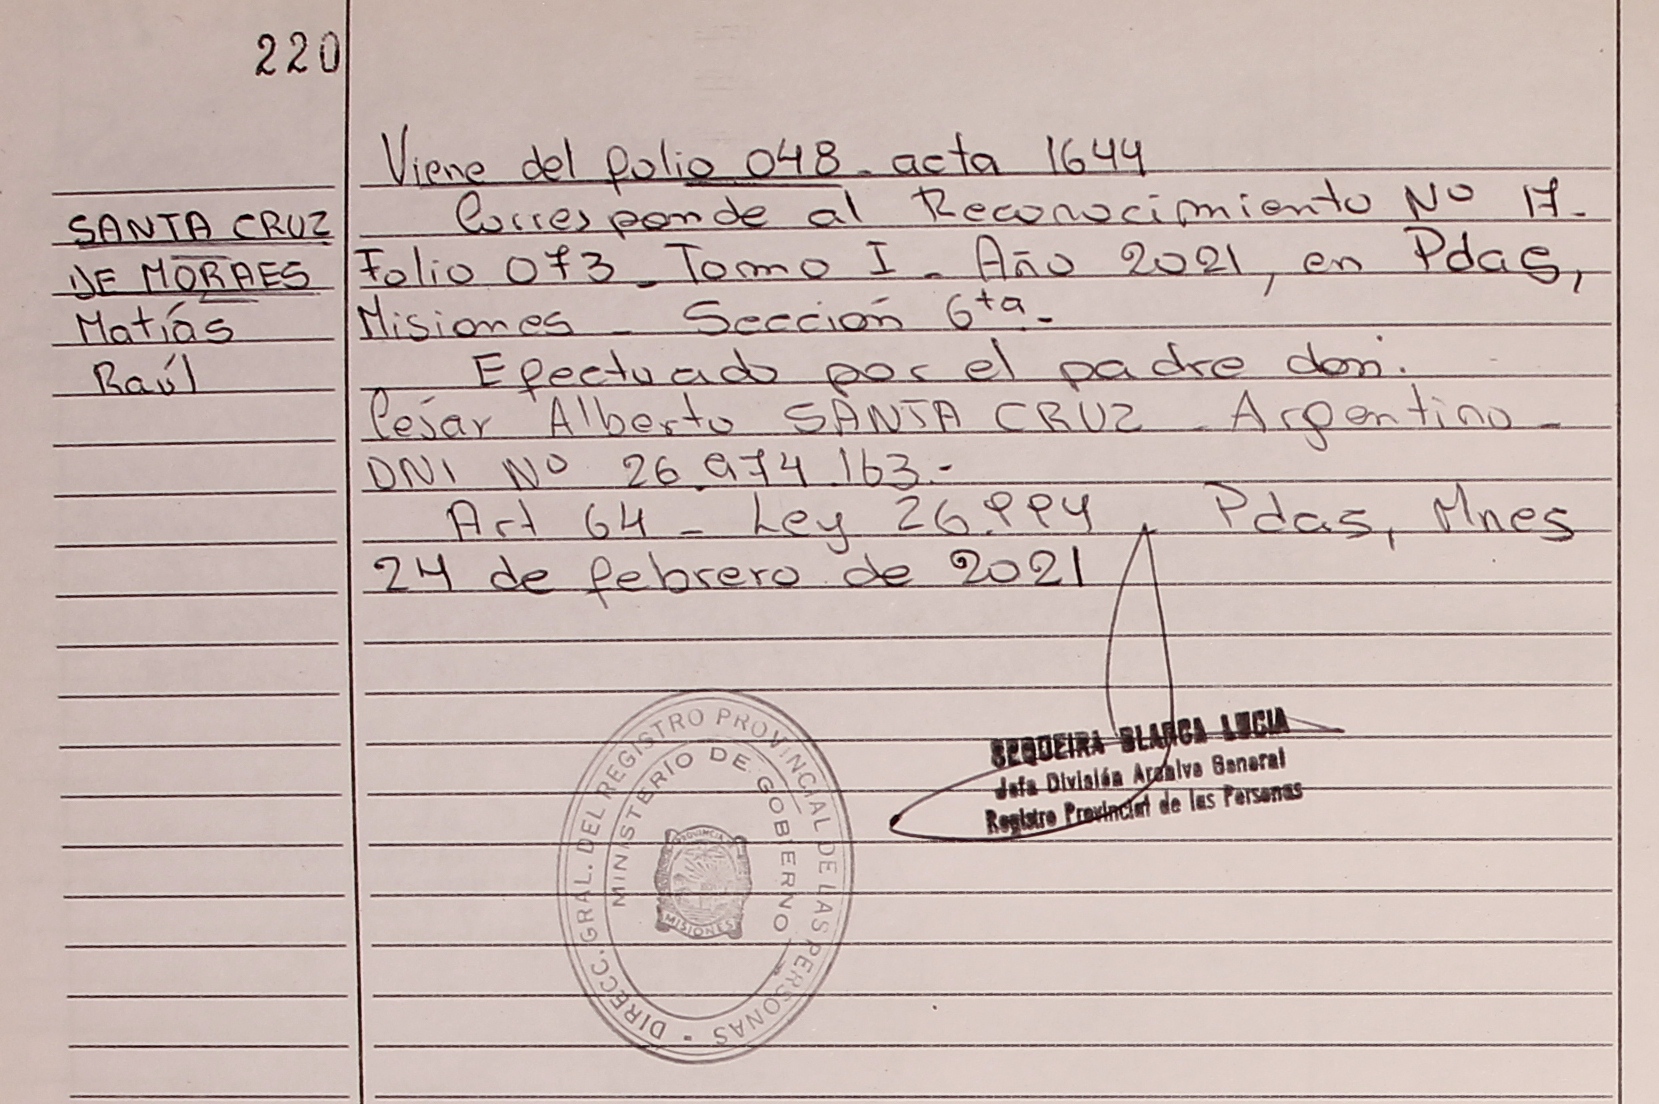 220
Viene del folio 048 - acta 1644
SANTA CRUZ
DE MORAES
Matías
Raúl
Corresponde al Reconocimiento Nº 17-
Folio 073 - Tomo I - Año 2021, en Pdas,
Misiones - Sección 6ta-
Efectuado por el padre don:
César Alberto SANTA CRUZ - Argentino -
DNI Nº 26.974.163.-
Art 64 - Ley 26.994. Pdas, Mnes
24 de febrero de 2021
DIRECC. GRAL. DEL REGISTRO PROVINCIAL DE LAS PERSONAS -
MINISTERIO DE GOBIERNO
PROVINCIA
MISIONES
SEQUEIRA BLANCA LUCIA
Jefa División Archivo General
Registro Provincial de las Personas